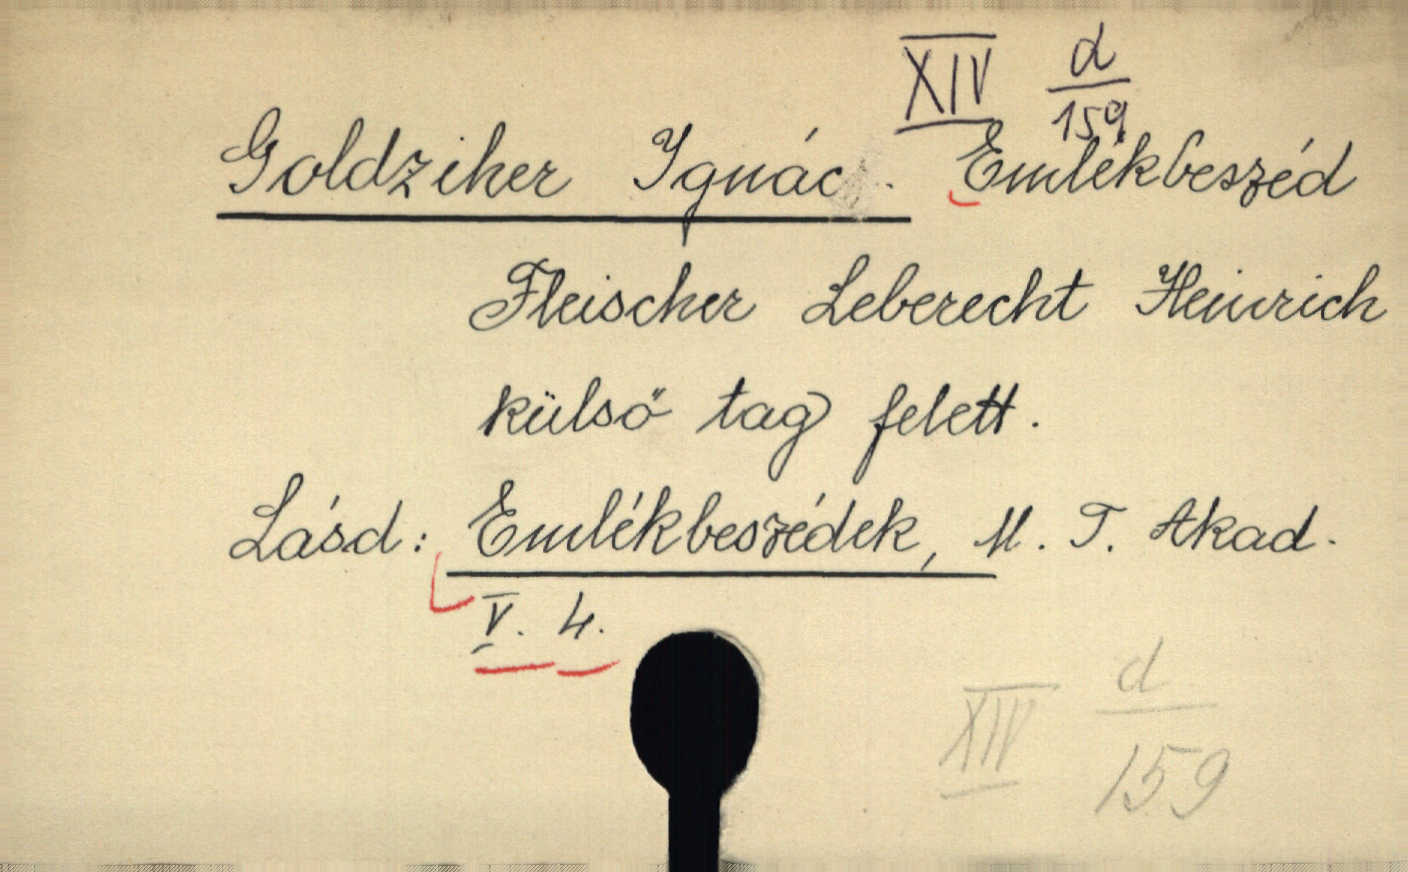 XIV d/159
Goldziher Ignác. Emlékbeszéd
Fleischer Leberecht Heinrich
külső tag felett.
Lásd: Emlékbeszédek, M. T. Akad.
V. 4.
XIV d/159